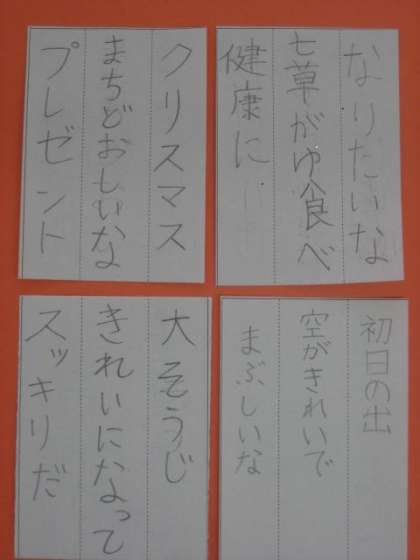 なりたいな
七草がゆ食べ
健康に
クリスマス
まちどおしいな
プレゼント
初日の出
空がきれいで
まぶしいな
大そうじ
きれいになって
スッキリだ